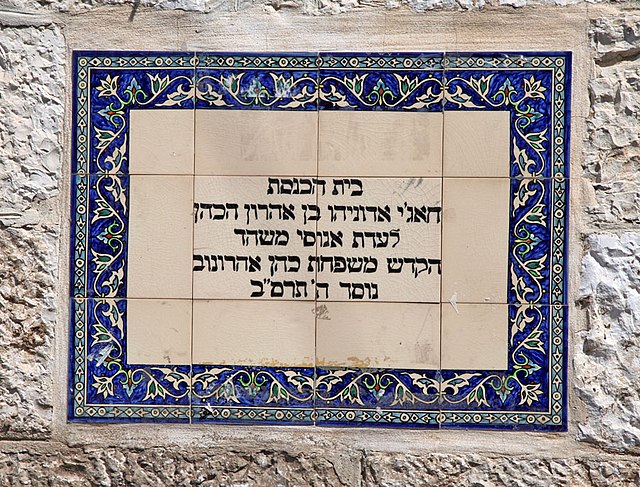 בית הכנסת
חאג'י אדוניהו בן אהרון הכהן
לעדת אנוסי משהד
הקדש משפחת כהן אהרונוב
נוסד ה' תרס"ב